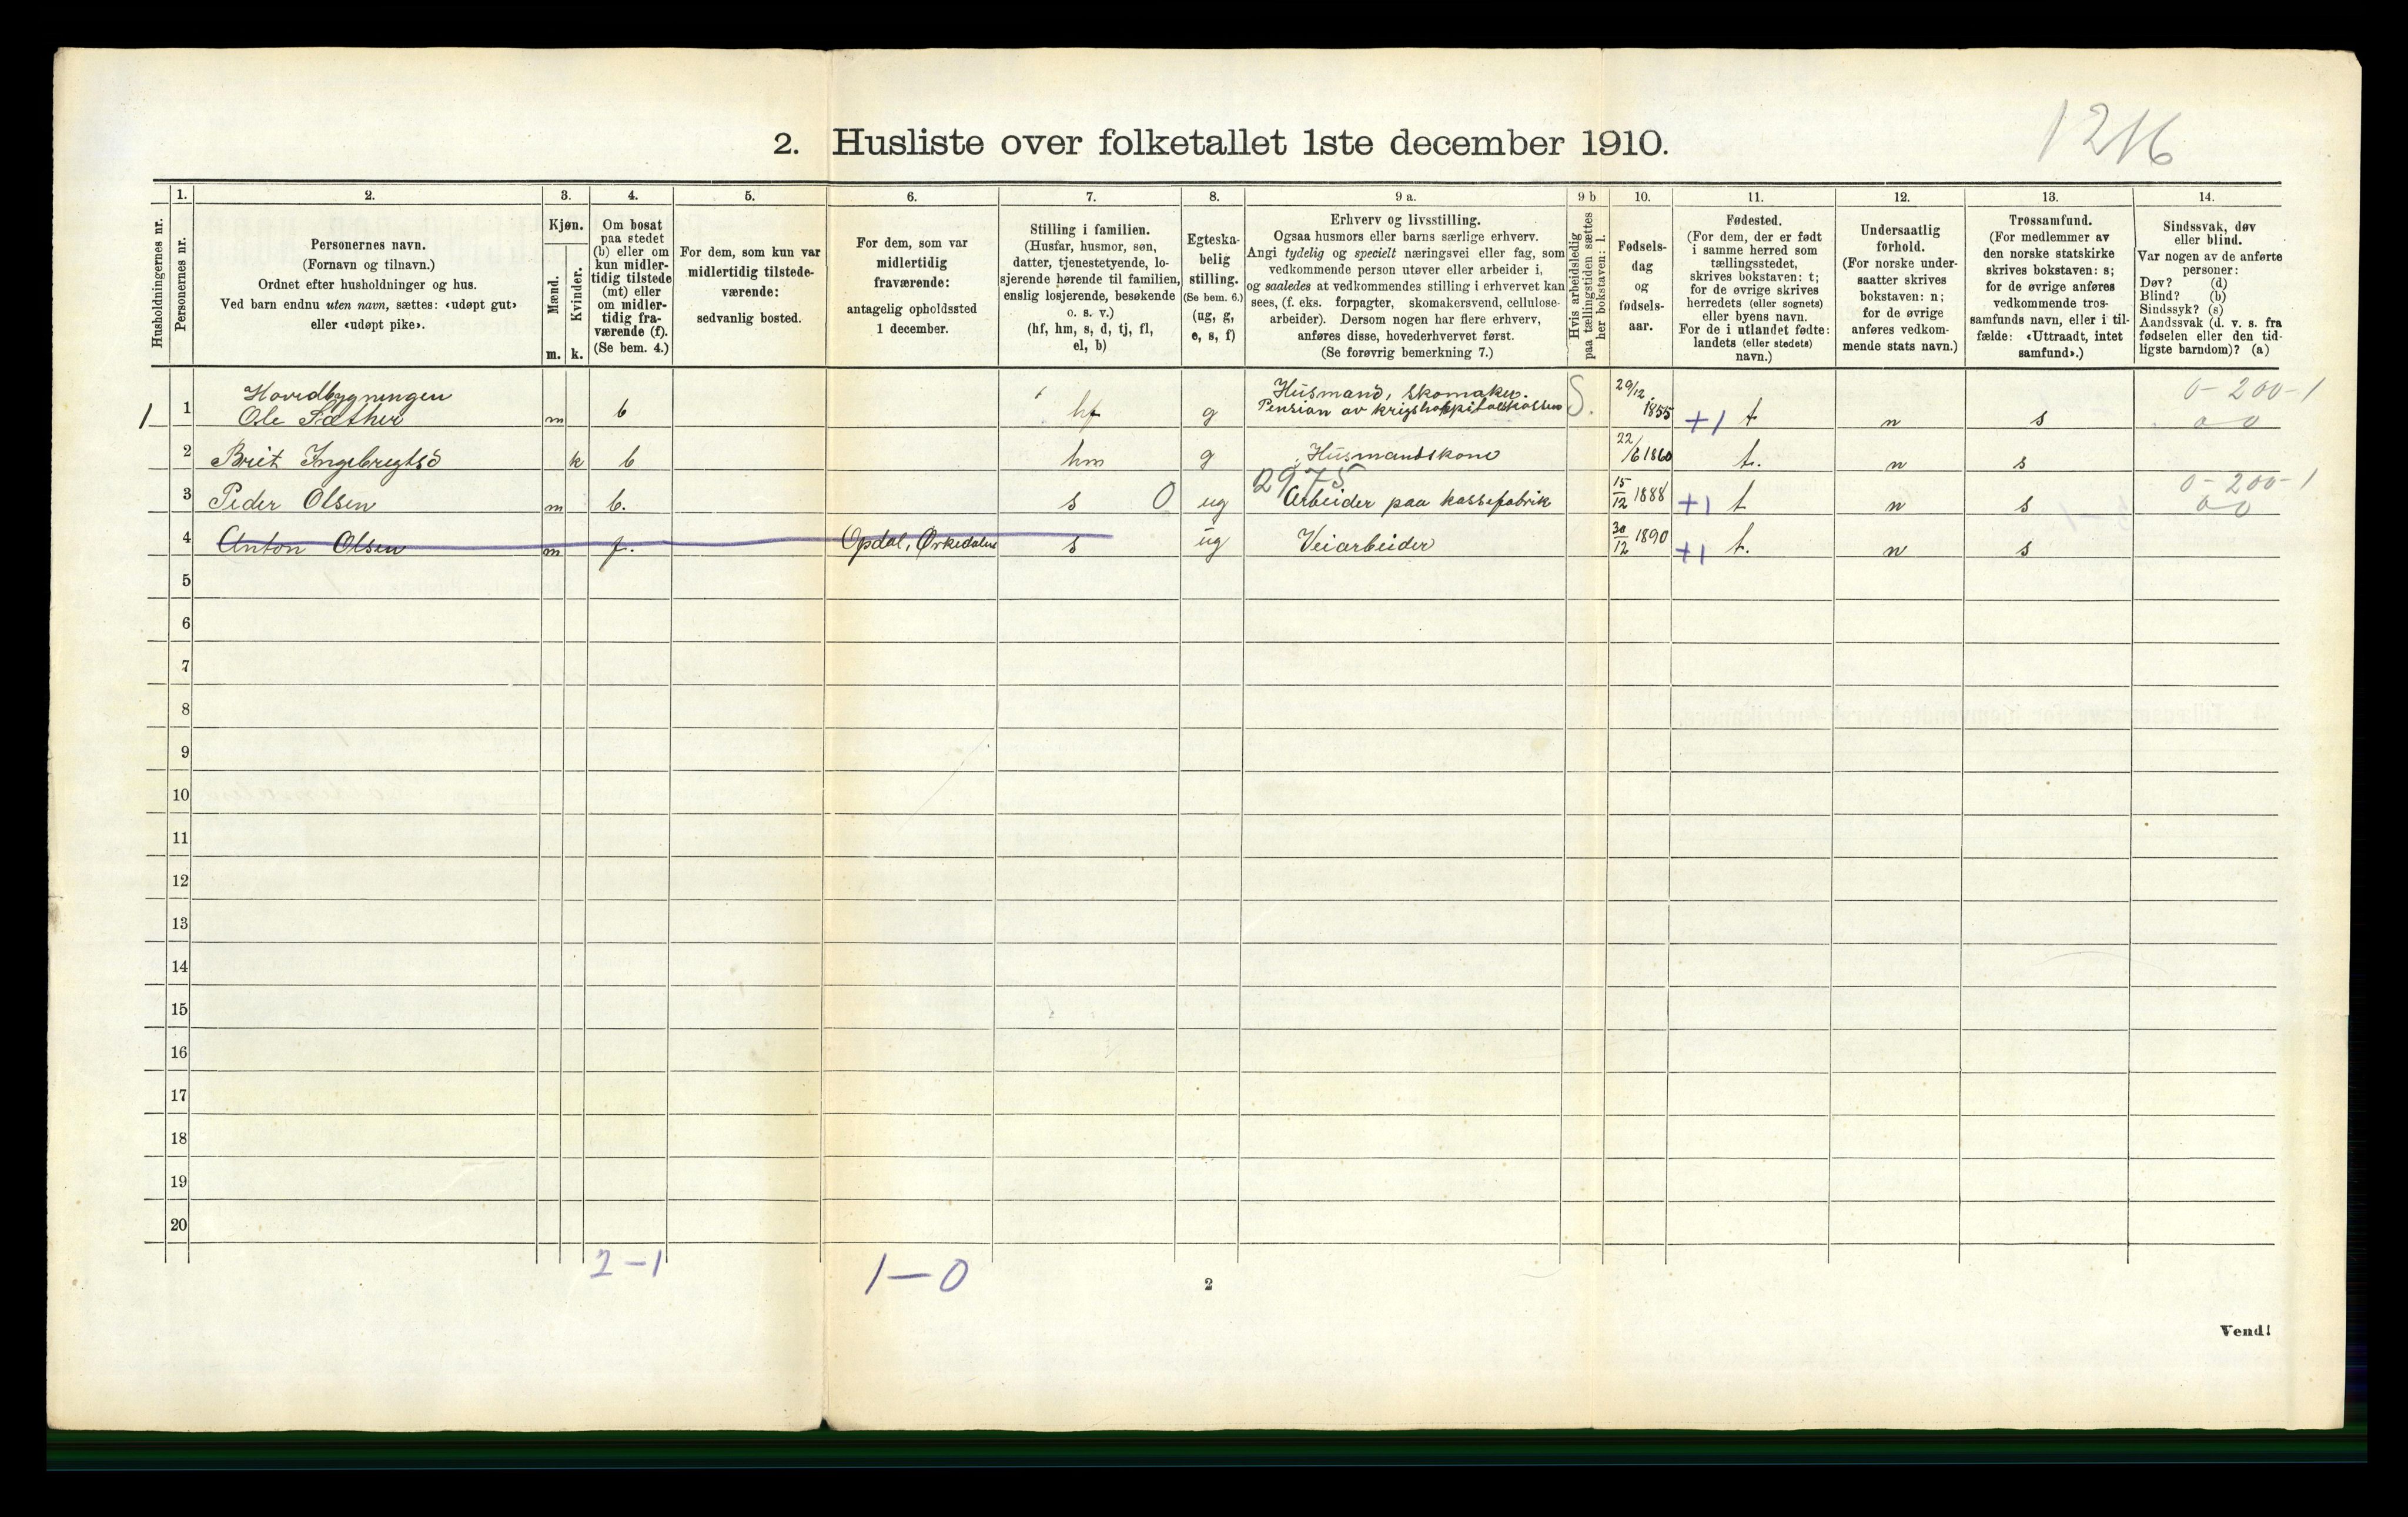 1216
2. Husliste over folketallet 1ste december 1910.
Husholdningernes nr.
1.
Personernes nr.
2.
Personernes navn.
(Fornavn og tilnavn.)
Ordnet efter husholdninger og hus.
Ved barn endnu uten navn, sættes: «udøpt gut»
eller «udøpt pike».
3.
Kjøn.
Mænd.
Kvinder.
m. k.
4.
Om bosat
paa stedet
(b) eller om
kun midler-
tidig tilstede
(mt) eller
om midler-
tidig fra-
værende (f).
(Se bem. 4.)
5.
For dem, som kun var
midlertidig tilstede-
værende:
sedvanlig bosted.
6.
For dem, som var
midlertidig
fraværende:
antagelig opholdssted
1 december.
7.
Stilling i familien.
(Husfar, husmor, søn,
datter, tjenestetyende, lo-
sjerende hørende til familien,
enslig losjerende, besøkende
o. s. v.)
(hf, hm, s, d, tj, fl,
el, b)
8.
Egteska-
belig
stilling.
(Se bem. 6.)
(ug, g,
e, s, f)
9 a.
Erhverv og livsstilling.
Ogsaa husmors eller barns særlige erhverv.
Angi tydelig og specielt næringsvei eller fag, som
vedkommende person utøver eller arbeider i,
og saaledes at vedkommendes stilling i erhvervet kan
sees, (f. eks. forpagter, skomakersvend, cellulose-
arbeider). Dersom nogen har flere erhverv,
anføres disse, hovederhvervet først.
(Se forøvrig bemerkning 7.)
9 b
Hvis arbeidsledig
paa tællingstiden sættes
her bokstaven: l.
10.
Fødsels-
dag
og
fødsels-
aar.
11.
Fødested.
(For dem, der er født
i samme herred som
tællingsstedet,
skrives bokstaven: t;
for de øvrige skrives
herredets (eller sognets)
eller byens navn.
For de i utlandet fødte:
landets (eller stedets)
navn.)
12.
Undersaatlig
forhold.
(For norske under-
saatter skrives
bokstaven: n;
for de øvrige
anføres vedkom-
mende stats navn.)
13.
Trossamfund.
(For medlemmer av
den norske statskirke
skrives bokstaven: s;
for de øvrige anføres
vedkommende tros-
samfunds navn, eller i til-
fælde: «Uttraadt, intet
samfund».)
14.
Sindssvak, døv
eller blind.
Var nogen av de anførte
personer:
Døv? (d)
Blind? (b)
Sindssyk? (s)
Aandssvak (d. v. s. fra
fødselen eller den tid-
ligste barndom)? (a)
Hovedbygningen Husmand, Skomaker. 29/12 0-200-1
1 1 Ole Sæther m b hf g Pension av krigshospitalskassen S. 1855 +1 t n s 0 0
2 Brit Ingebregtsd k b hm g Husmandskone 22/6 1860 t. n s
2975 0-200-1
3 Peder Olsen m b. s 0 ug Arbeider paa kassefabrik 15/12 1888 +1 t n s 0 0
4 Anton Olsen m f. Opdal, Ørkedalen s ug Veiarbeider 30/12 1890 +1 t. n s
5
6
7
8
9
10
11
12
13
14
15
16
17
18
19
20
2-1
1-0
2
Vend!